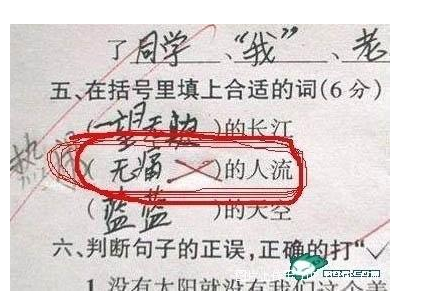 了同学、“我”、老
五、在括号里填上合适的词(6分)
(一望无 )的长江
(无痛)的人流
(蓝蓝)的天空
六、判断句子的正误,正确的打“√
1.没有太阳就没有我们这个美